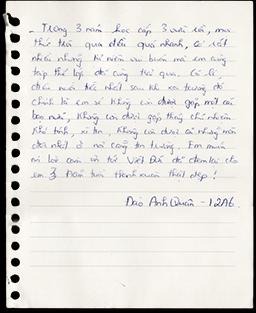 - Trong 3 năm học cấp 3 vừa rồi, mọi
thứ trôi qua điều quá nhanh, có rất
nhiều những kỉ niệm vui buồn mà em cùng
tập thể lớp đã cùng trải qua. Có lẽ,
điều nuối tiếc nhất sau khi xa trường đó
chính là em sẽ không còn được gặp mặt các
bạn nữa, không còn được gặp thầy chủ nhiệm
khó tính, không còn được cả những món
nhất ở nơi căng tin trường. Em muốn
nói lời cảm ơn tới Việt Đức đã đem lại cho
em 3 năm tuổi thanh xuân thật đẹp!
Đào Anh Quân - 12A6